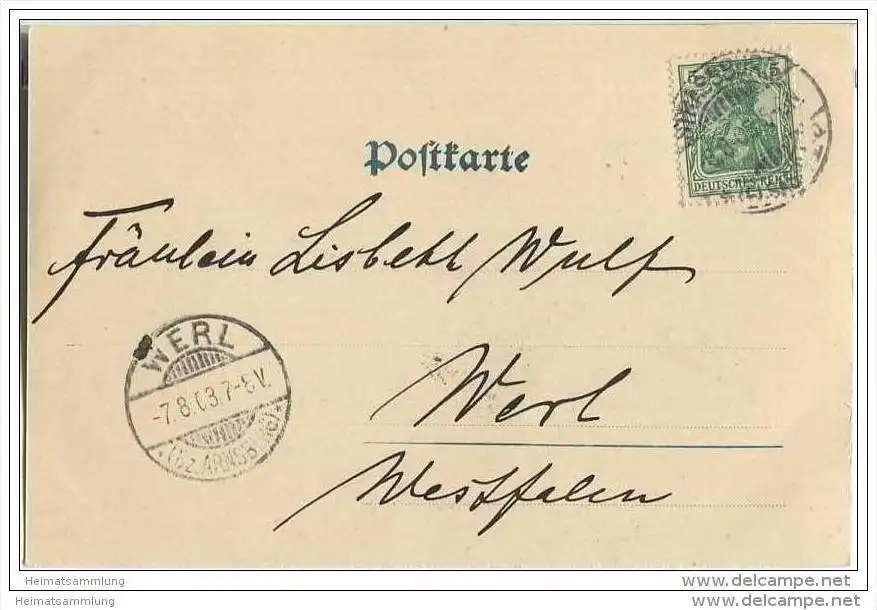 5 5
DEUTSCHES REICH
Postkarte
Fräulein Lisbeth Wulf
WERL
-7.8.03.7-8V.
(Bz. ARNSBERG)
Werl
Westfalen
Heimatsammlung
www.delcampe.net
Heimatsammlung
www.delcampe.net